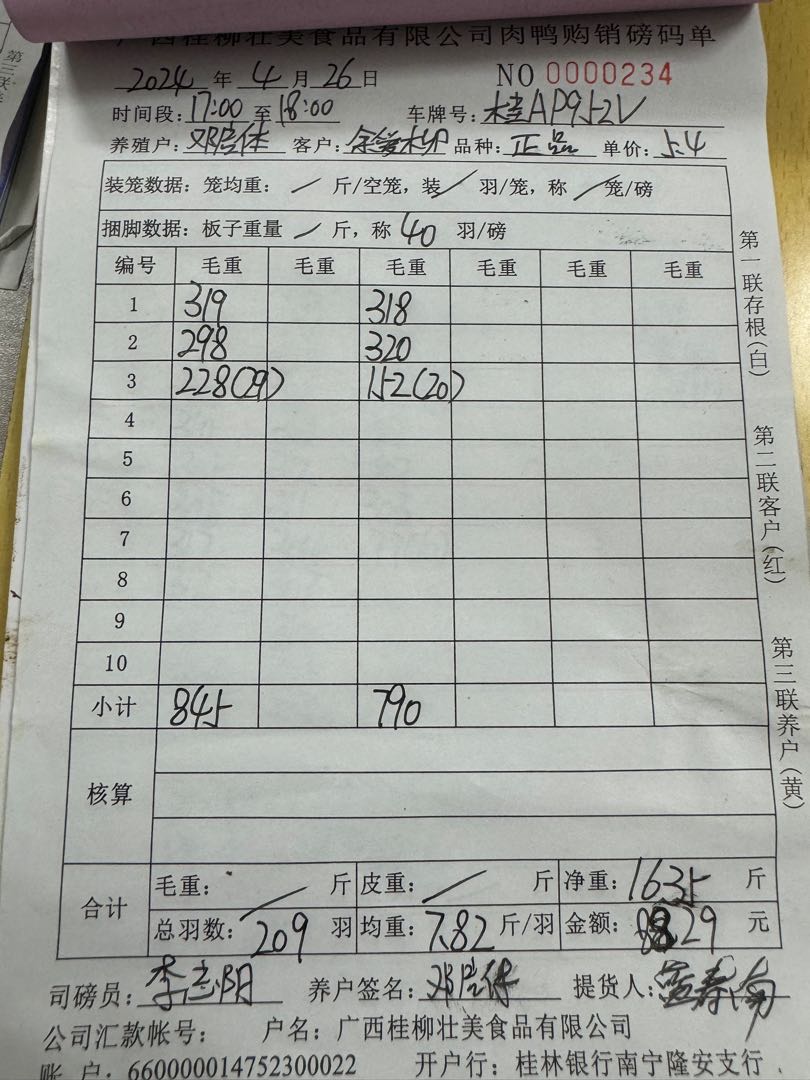 广西桂柳壮美食品有限公司肉鸭购销磅码单
2024 年 4 月 26 日 NO 0000234
时间段: 17:00 至 18:00 车牌号: 桂AP952V
养殖户: 客户: 品种: 正品 单价: 5.4
装笼数据: 笼均重: / 斤/空笼, 装 / 羽/笼, 称 / 笼/磅
捆脚数据: 板子重量 / 斤, 称 40 羽/磅
编号 毛重 毛重 毛重 毛重 毛重 毛重
1 319 318
2 298 320
3 228(29) 152(20)
4
5
6
7
8
9
10
小计 845 790
核算
合计
毛重: / 斤 皮重: / 斤 净重: 1635 斤
总羽数: 209 羽 均重: 7.82 斤/羽 金额: 8829 元
司磅员: 李志阳 养户签名: 提货人:
公司汇款帐号: 户名: 广西桂柳壮美食品有限公司
账 户: 660000014752300022 开户行: 桂林银行南宁隆安支行
第一联存根(白)
第二联客户(红)
第三联养户(黄)
第三联